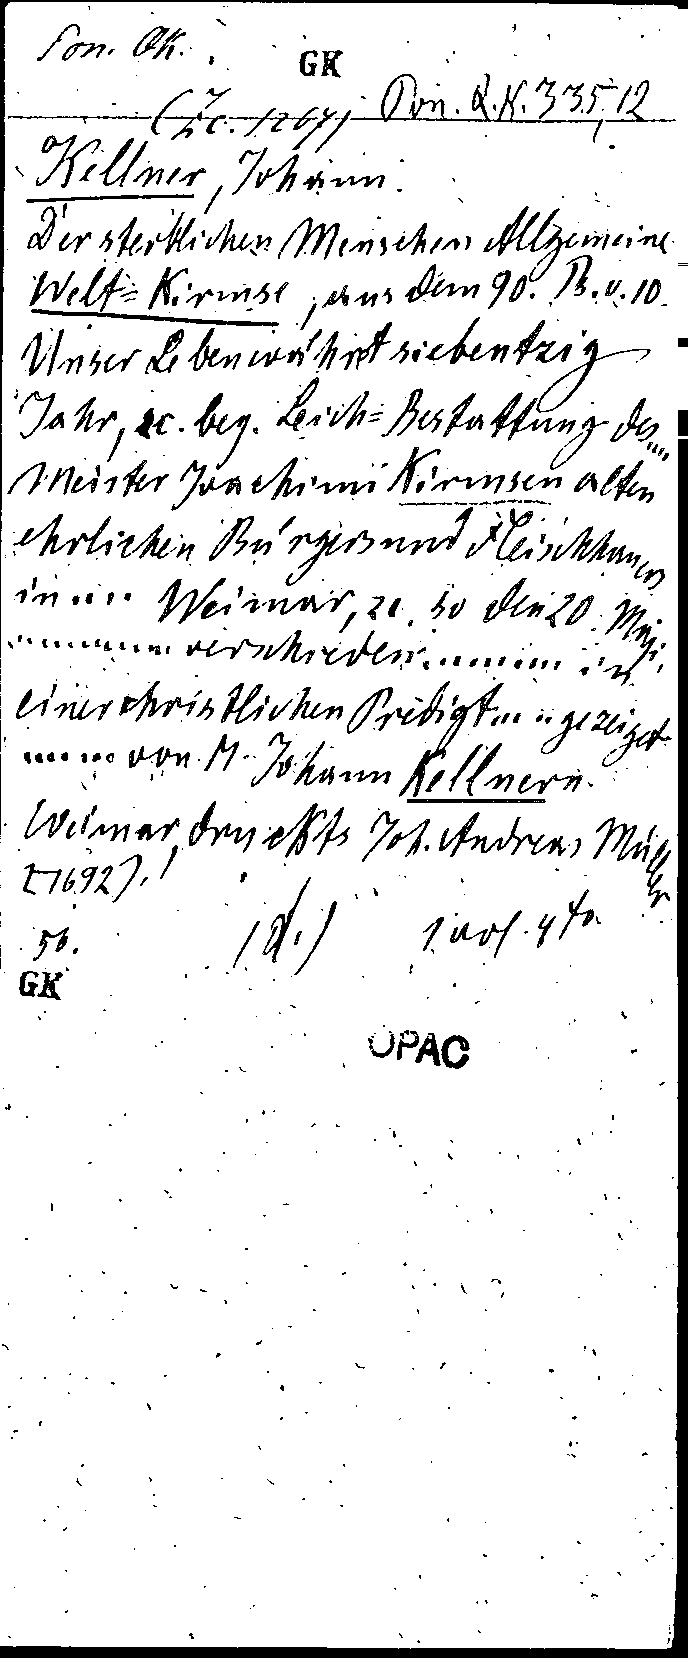 Pon. QK. GK
(Zc. 1207) Pon. Q.K. 335,12
Kellner, Johann.
Der sterblichen Menschen Allgemeine
Welt=Kirmse, aus dem 90. Ps. v. 10.
Unser Leben währet siebentzig
Jahr, ec. bey Leich=Bestattung des....
Meister Joachimi Kirmsen alten
ehrlichen Bürgers und Fleischhauers
in.... Weimar, ec. so den 20. Maji.
........ verschieden ....... in
einer christlichen Predigt.... gezeiget
...... von M. Johann Kellnern.
Weimar, druckts Joh. Andreas Müller
[1692].
(d.) 1 vol. 4to.
GK
OPAC